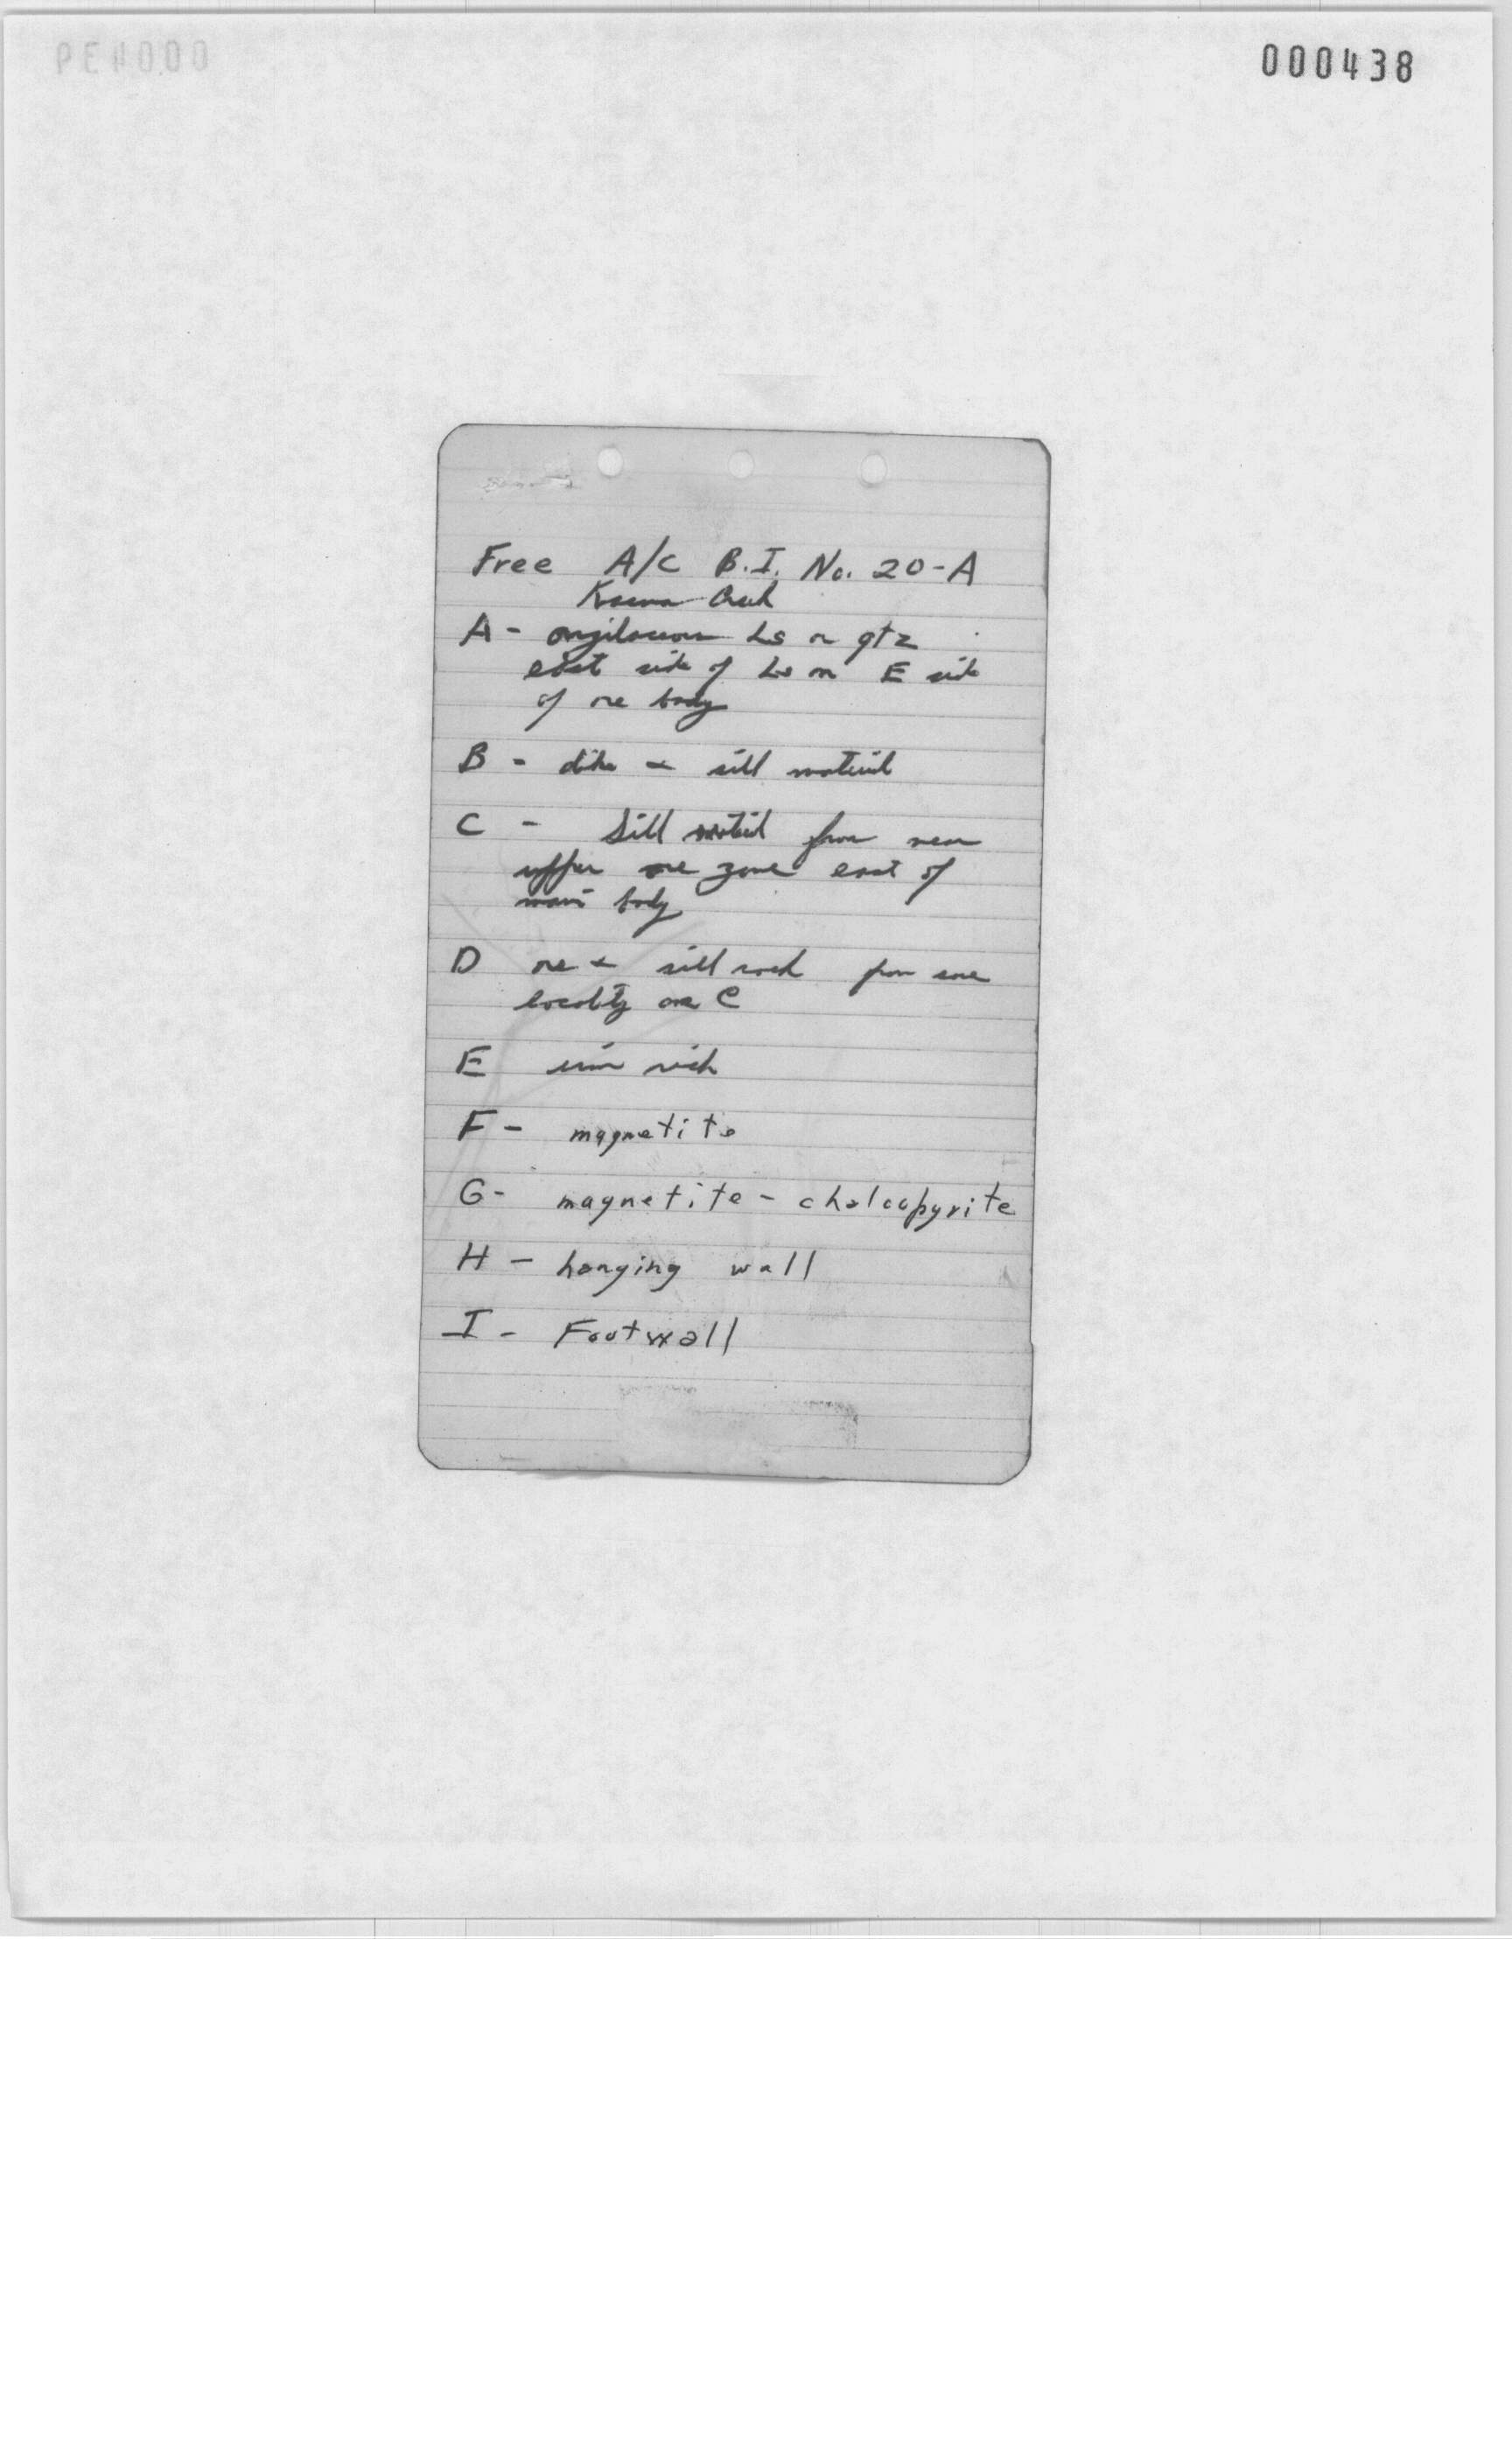 000438
Free A/C B.I. No. 20-A
Creek
A - argilaceous Ls or qtz
east side of Ls on E side
of ore body
B - dike or sill material
C - Sill material from near
upper ore zone east of
main body
D ore + sill rock from same
locality as C
E iron rich
F - magnetite
G- magnetite - chalcopyrite
H - hanging wall
I - Footwall